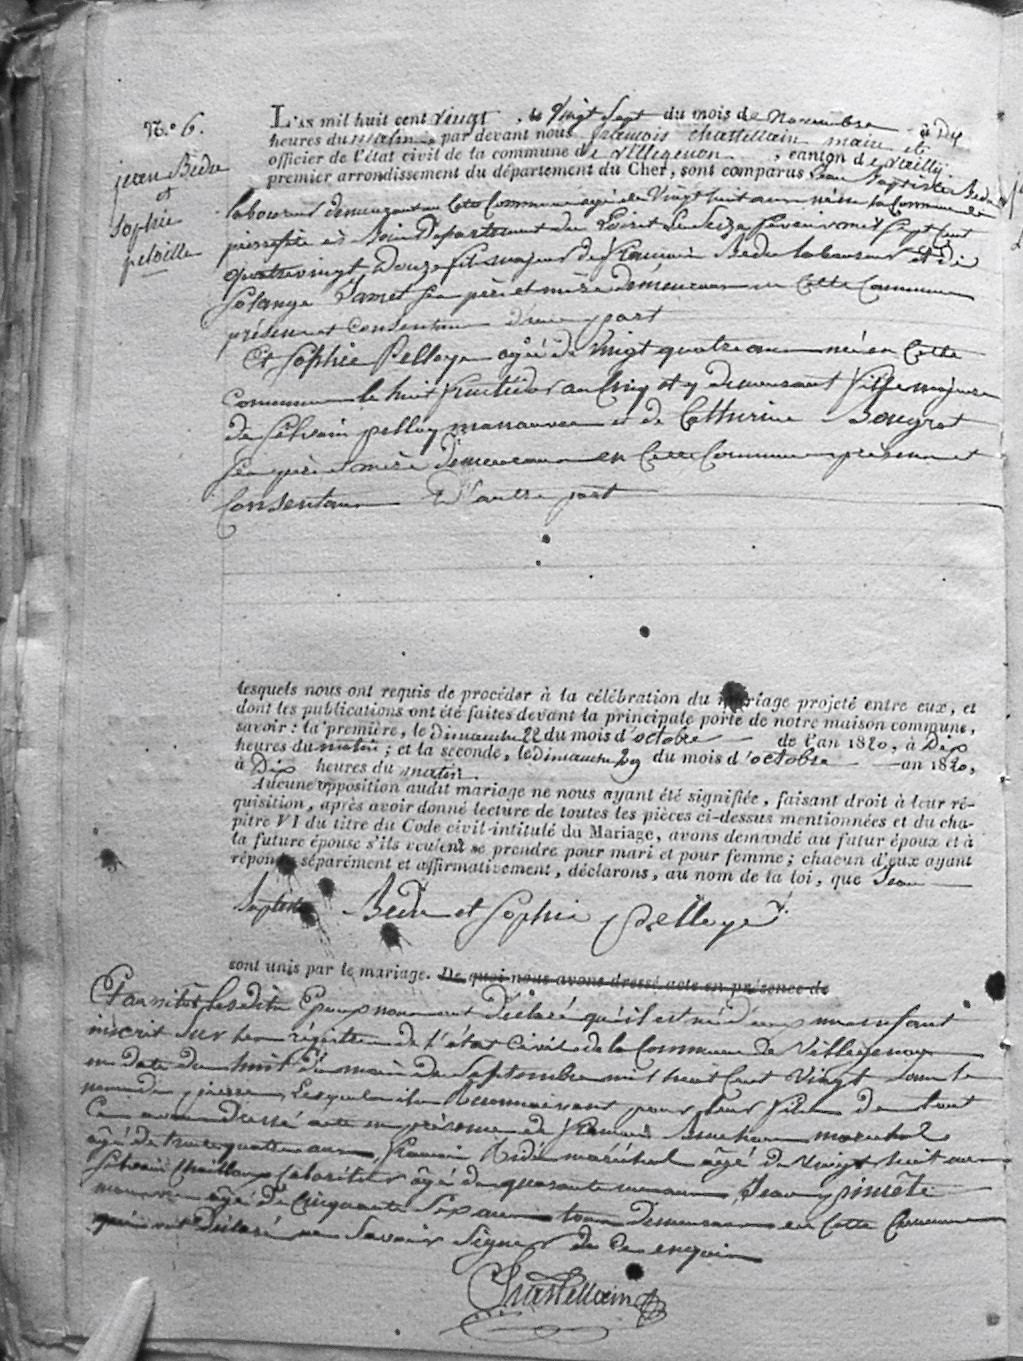 N.° 6.
jean Bedu
et
Sophie
peloille
L'an mil huit cent vingt, le vingt Sept du mois de Novembre à Dix
heures du matin, par devant nous françois chastellain maire et
officier de l'état civil de la commune de villegenon, canton de vailly
premier arrondissement du département du Cher, sont comparus Jean Baptiste Bedu
laboureur demeurant en Cette Commune agé de Vingt huit ans né en la Commune de
pierrefite es Bois Departement du Loiret Le Seize fevrier mil Sept Cent
quatrevingt Douze fils majeur de francois Bedu laboureur et de
Solange Jamet Ses père et mère demeurans en Cette Commune
présens et Consentans d'une part
Et Sophie Pelloye agée de Vingt quatre ans née en Cette
Commune le huit fructidor an Cinq et y demeurant fille majeure
de Silvain pelloy manœuvre et de Catherine Bougrat
Ses père et mère demeurans en Cette Commune présens et
Consentans D'autre part
lesquels nous ont requis de procéder à la célébration du mariage projeté entre eux, et
dont les publications ont été faites devant la principale porte de notre maison commune,
savoir : la première, le dimanche 22 du mois d'octobre de l'an 1820, à Dix
heures du matin ; et la seconde, le dimanche 29 du mois d'octobre an 1820,
à Dix heures du matin.
Aucune opposition audit mariage ne nous ayant été signifiée, faisant droit à leur ré-
quisition, après avoir donné lecture de toutes les pièces ci-dessus mentionnées et du cha-
pitre VI du titre du Code civil intitulé du Mariage, avons demandé au futur époux et à
la future épouse s'ils veulent se prendre pour mari et pour femme ; chacun d'eux ayant
répondu séparément et affirmativement, déclarons, au nom de la loi, que Jean
Baptiste Bedu et Sophie Pelloye
sont unis par le mariage. De quoi nous avons dressé acte en présence de
Et aussitôt lesdits Epoux nous ont Déclaré qu'il est né d'eux un enfant
inscrit sur les régistres de l'état Civil de la Commune de Villegenon
en date du huit du mois de Septembre mil huit Cent Vingt sous le
nom de pierre, Lequel ils reconnaissent pour leur fils de tout
Ce avons dressé acte en présence de francois maréchal
âgé de trente quatre ans, francois maréchal âgé de Vingt huit ans
Silvain Chaillou Cabaretier âgé de quarante ans, Jean piniete
manœuvre âgé de Cinquante Six ans tous demeurans en Cette Commune
qui ont Déclaré ne Savoir Signer de Ce enquis
Chastellain